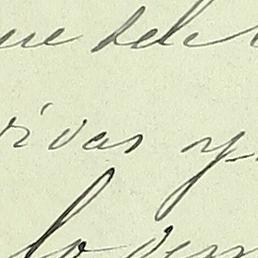 ue del
rivas y
lo ven